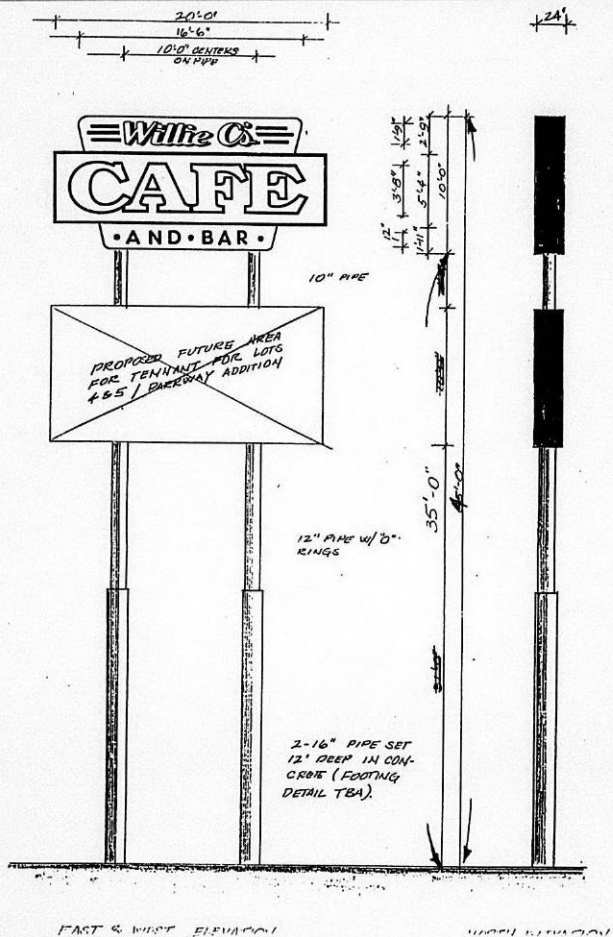 20'-0"
16'-6"
10'-0" CENTERS
ON PIPE
24"
Willie C's
CAFE
•AND•BAR•
1'-9"
2'-9"
3'-8"
5'-4"
10'-0"
12"
1'-11"
10" PIPE
PROPOSED FUTURE AREA
FOR TENNANT FOR LOTS
4 & 5 / PARKWAY ADDITION
35'-0"
45'-0"
12" PIPE W/ "O"
RINGS
2-16" PIPE SET
12' DEEP IN CON-
CRETE (FOOTING
DETAIL TBA).
EAST & WEST ELEVATION
NORTH ELEVATION